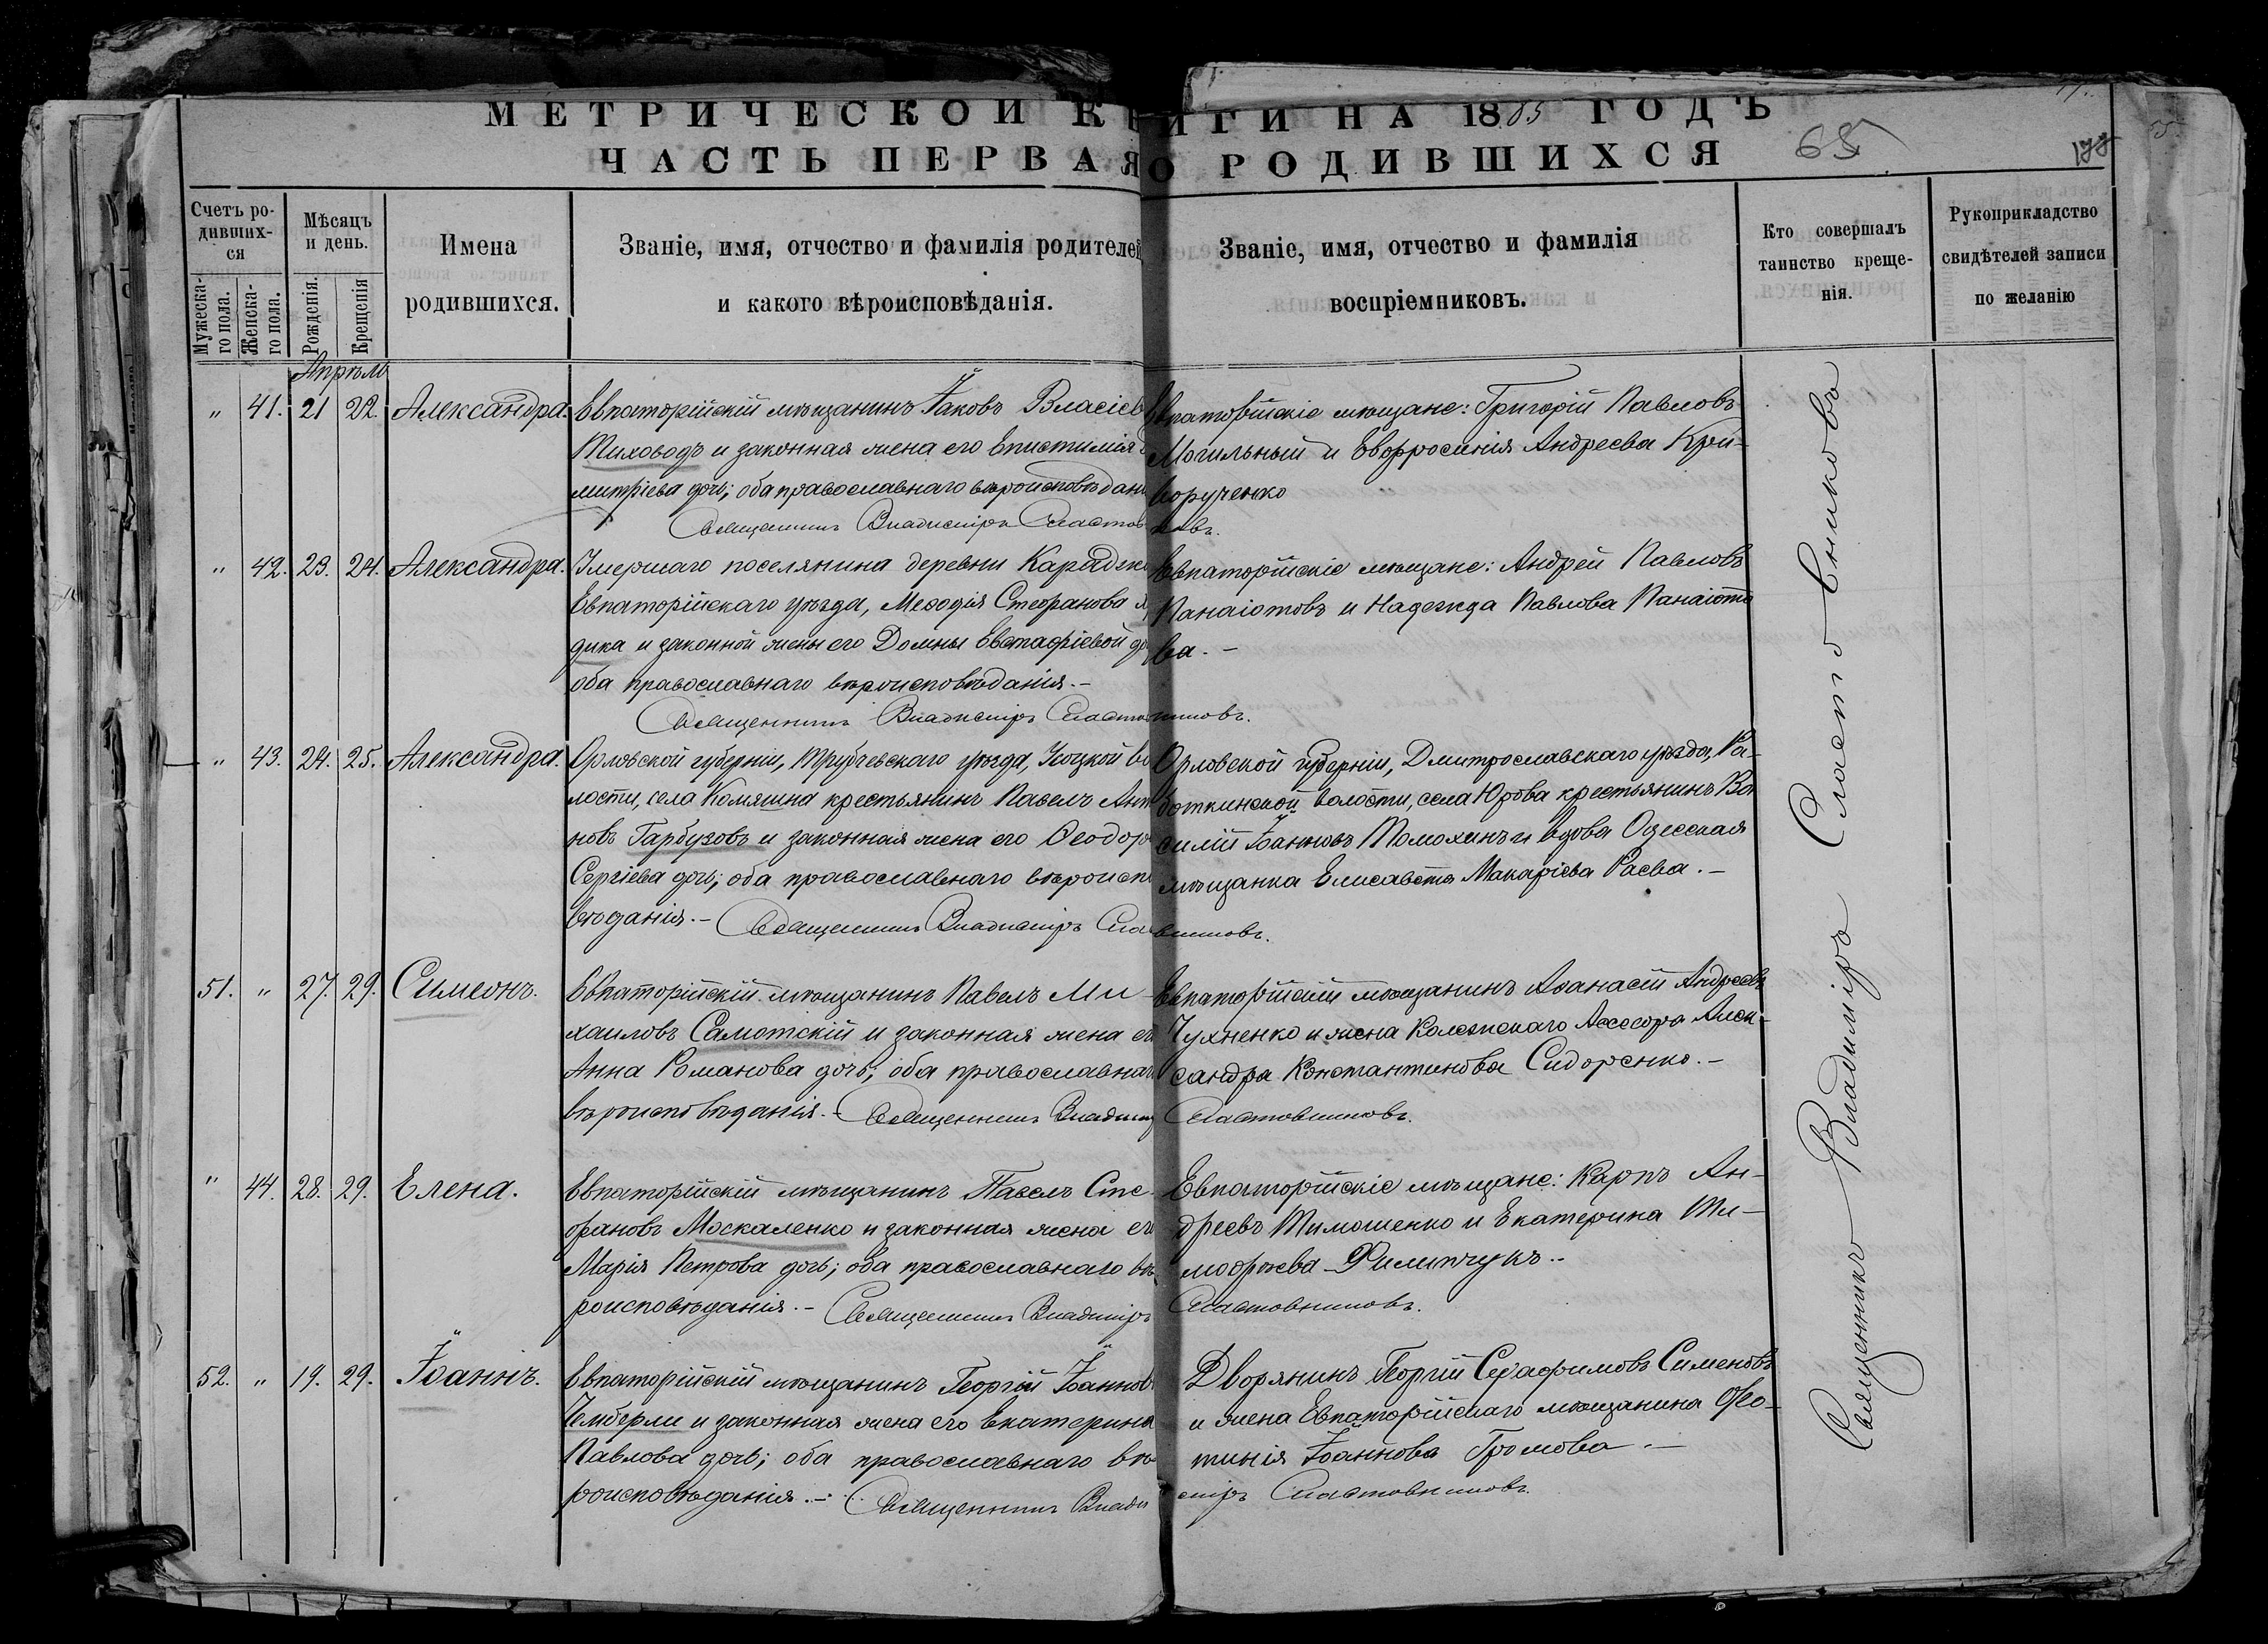 МЕТРИЧЕСКОЙ КНИГИ НА 1885 ГОДЪ
ЧАСТЬ ПЕРВАЯ О РОДИВШИХСЯ
65
Счетъ ро-
дивших-
ся
Мужеска-
го пола.
Женска-
го пола.
Мѣсяцъ
и день.
Рожденія.
Крещенія
Имена
родившихся.
Званіе, имя, отчество и фамилія родителей
и какого вѣроисповѣданія.
Званіе, имя, отчество и фамилія
воспріемниковъ.
Кто совершалъ
таинство креще-
нія.
Рукоприкладство
свидѣтелей записи
по желанію
Апрѣль
" 41. 21 22. Александра.
Евпаторійскій мѣщанинъ Іаковъ Власіев
Тиховодъ и законная жена его Епистимія
митріева дочь; оба православнаго вѣроисповѣдані
Священникъ Владиміръ Сластов
Евпаторійскіе мѣщане: Григорій Павловъ
Могильный и Евфросинія Андреева Кри-
ворученко
" 42. 23. 24. Александра.
Умершаго поселянина деревни Карадж
Евпаторійскаго уѣзда, Меѳодія Стефанова
дика и законной жены его Домны Евстафіевой до
оба православнаго вѣроисповѣданія.-
Священникъ Владиміръ Сластовниковъ.
Евпаторійскіе мѣщане: Андрей Павловъ
Панаіотовъ и Надежда Павлова Панаіото
ва.-
" 43. 24. 25. Александра.
Орловской губерніи, Трубчевскаго уѣзда, Усоцкой во
лости, села Комягина крестьянинъ Павелъ Ант
новъ Гарбузовъ и законная жена его Ѳеодор
Сергіева дочь; оба православнаго вѣроиспо
вѣданія.- Священникъ Владиміръ Сластовниковъ.
Орловской губерніи, Дмитрославскаго уѣзда, Ра-
боткинской волости, села Юрова крестьянинъ Ва
силій Іоанновъ Толохинъ и вдова Одесская
мѣщанка Елисавета Макаріева Раева.-
51. " 27. 29. Симеонъ.
Евпаторійскій мѣщанинъ Павелъ Ми-
хаиловъ Самотскій и законная жена ег
Анна Романова дочь; оба православнаг
вѣроисповѣданія.- Священникъ Владимір Сластовниковъ.
Евпаторійскій мѣщанинъ Аѳанасій Андреевъ
Чухненко и жена Колежскаго Ассесора Алек-
сандра Константинова Сидоренко.-
" 44. 28. 29. Елена.
Евпаторійскій мѣщанинъ Павелъ Сте-
фановъ Москаленко и законная жена его
Марія Петрова дочь; оба православнаго вѣ-
роисповѣданія.- Священникъ Владиміръ Сластовниковъ.
Евпаторійскіе мѣщане: Карпъ Ан-
дреевъ Тимошенко и Екатерина Ти-
моѳѣева Филипчукъ.-
52. " 19. 29. Іоаннъ.
Евпаторійскій мѣщанинъ Георгій Іоаннов
Чемберли и законная жена его Екатерина
Павлова дочь; оба православнаго вѣ-
роисповѣданія.- Священникъ Владиміръ Сластовниковъ.
Дворянинъ Георгій Серафимовъ Сименовъ
и жена Евпаторійскаго мѣщанина Фо-
тинія Іоаннова Громова.-
Священникъ Владиміръ Сластовниковъ